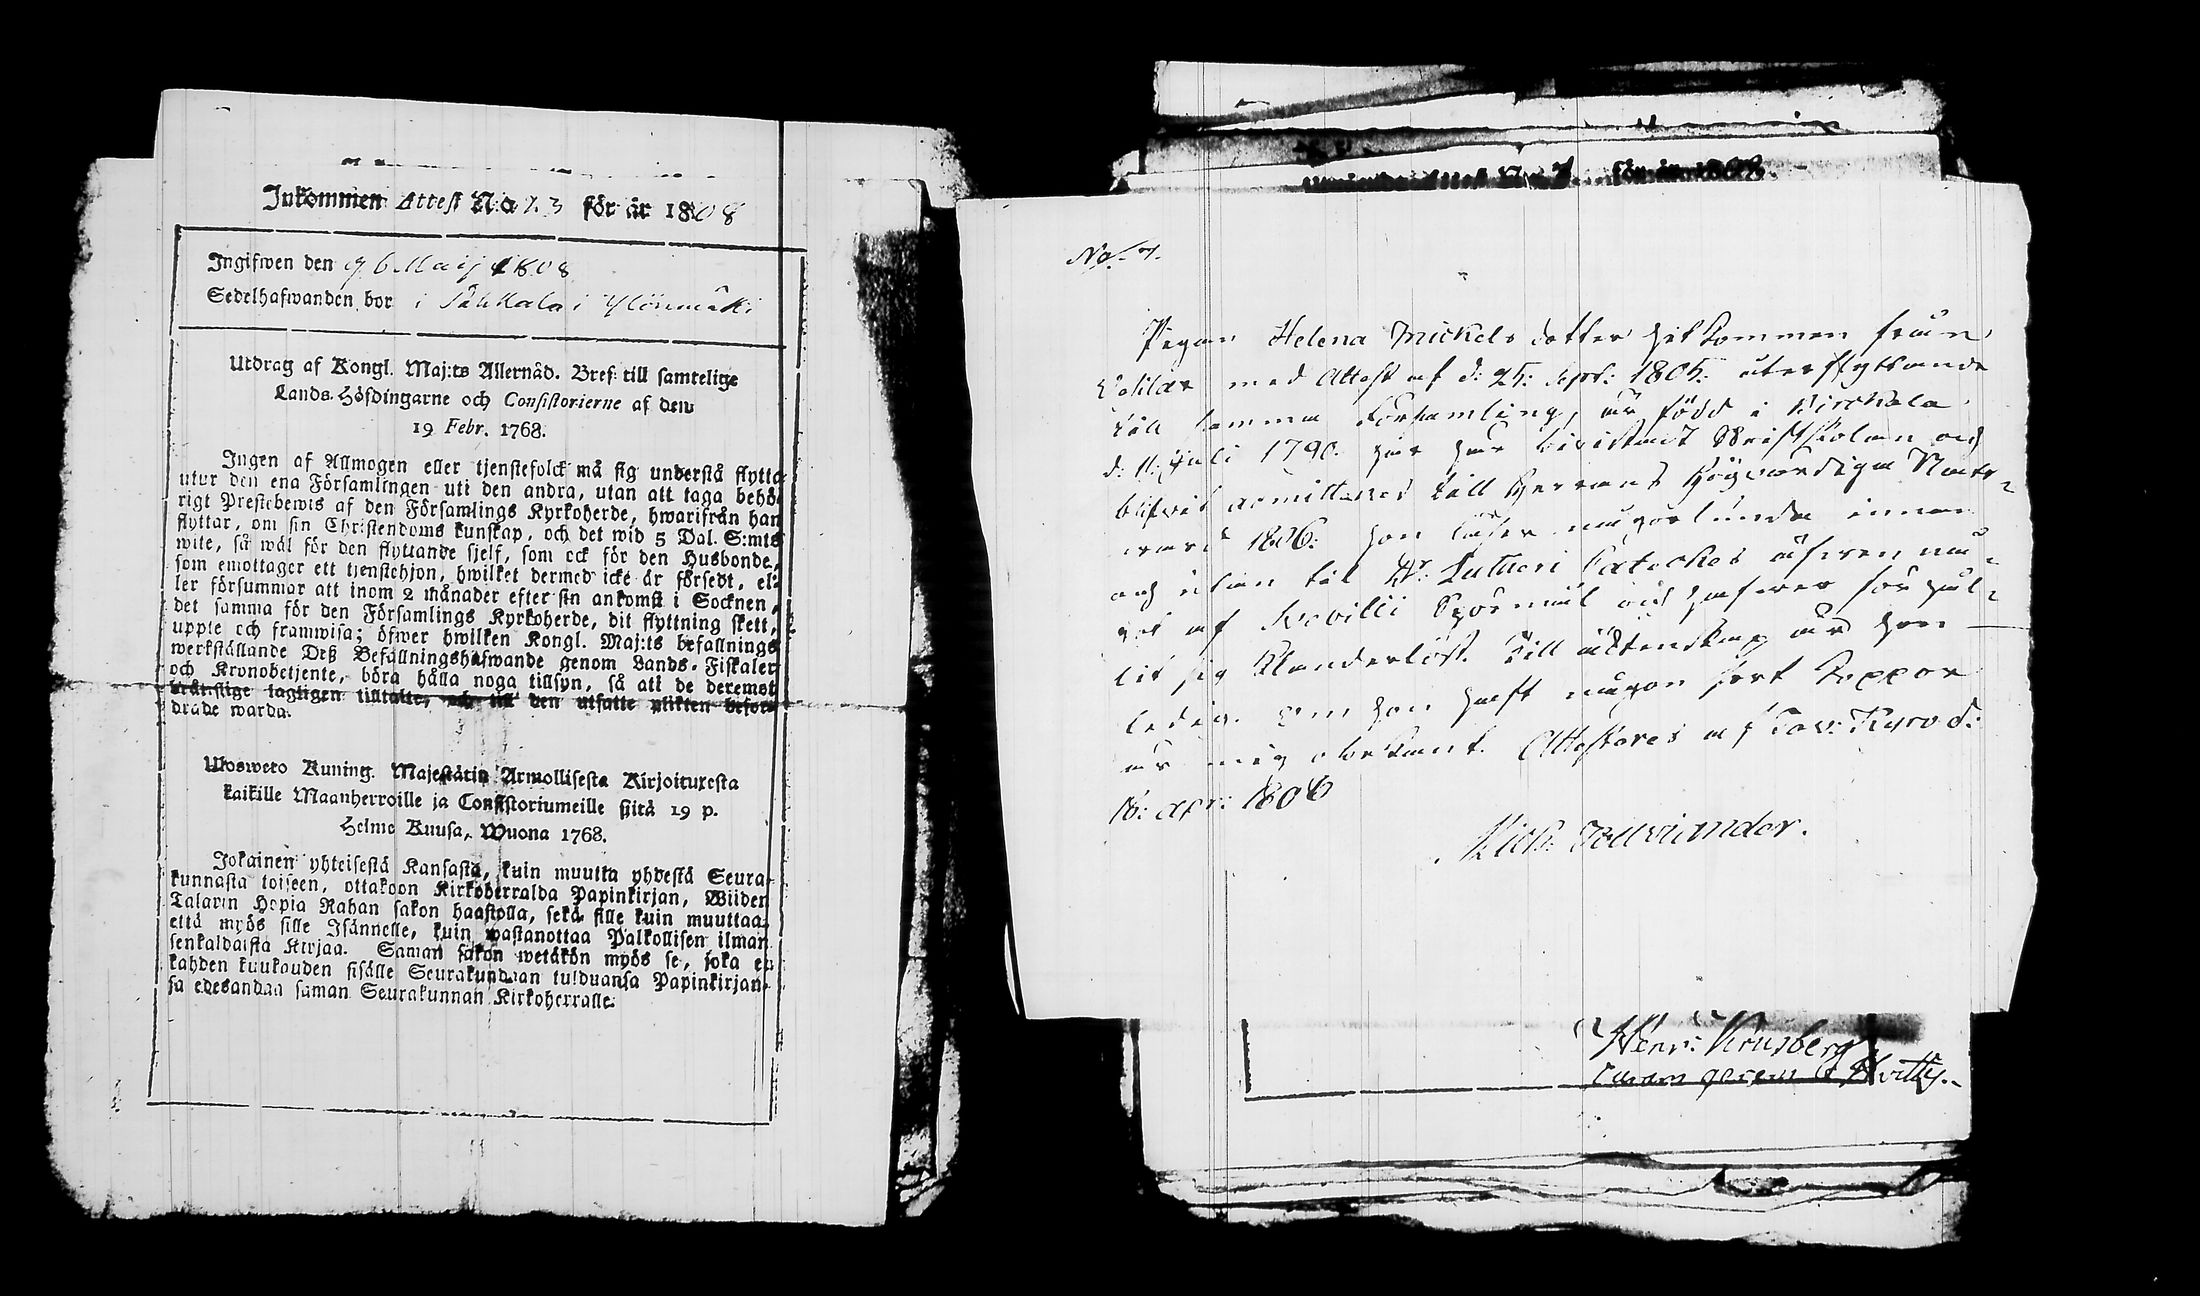 Inkommen Attest N:o 7.3 för år 1808
Ingifwen den 26 Maij 1808
Sedelhafwanden bor i Sakkala i Ylönmäki
Utdrag af Kongl. Maj:ts Allernåd. Bref till samtelige
Lands-Höfdingarne och Consistorierne af den
19 Febr. 1768.
Ingen af Allmogen eller tjenstefolck må sig understå flytta
utur den ena Församlingen uti den andra, utan att taga behö-
rigt Prestebewis af den Församlings Kyrkoherde, hwarifrån han
flyttar, om sin Christendoms kunskap, och det wid 5 Dal. S:mts
wite, så wäl för den flyttande sjelf, som ock för den Husbonde,
som emottager ett tjenstehjon, hwilket dermed icke är försedt, el-
ler försummar att inom 2 månader efter sin ankomst i Socknen,
det samma för den Församlings Kyrkoherde, dit flyttning skett,
uppte och framwisa; öfwer hwilken Kongl. Maj:ts befallnings
werkställande Deß Befallningshafwande genom Lands-Fiskaler
och Kronobetjente, böra hålla noga tillsyn, så att de deremot
bråtslige lagligen tilltalte, och till den utsatte plikten befor-
drade warda.
Ulosweto Kuning. Majestätin Armollisesta Kirjoituxesta
kaikille Maanherroille ja Consistoriumeille siitä 19 p.
Helme Kuusa, Wuona 1768.
Jokainen yhteisestä Kansasta, kuin muutta yhdestä Seura-
kunnasta toiseen, ottakoon Kirkoherralda Papinkirjan, Wiiden
Talarin Hopia Rahan sakon haastolla, sekä sille kuin muuttaa,
että myös sille Isännelle, kuin wastanottaa Palkollisen ilman
senkaldaista Kirjaa. Saman sakon wetäkön myös se, joka ei
kahden kuukauden sisälle Seurakundaan tulduansa Papinkirjan-
sa edesandaa saman Seurakunnan Kirkoherralle.
för år 1808.
No. 7.
Pigan Helena Mickels dotter hitkommen från
med Attest af d: 25: Sept: 1805: återflyttande
till samma Församling, är född i Birckala
d: 11 Juli 1790. har här bivistadt Skriftskolan och
blifvit admitterad till Herrans Högvärdiga Natt-
vard 1806: hon läser någorlunda innan
och utan till Dr: Lutheri Cateches äfven nå-
got af Svebilii Spörsmål och hafver förhål-
lit sig Klanderlöst. Till äktenskap är hon
ledig. Om hon haft någon sort Koppor
är mig obekant. Attesteras af Tav: Kyro d:
16: apr: 1808
Mich:
Henr: Krusberg
curam gerens